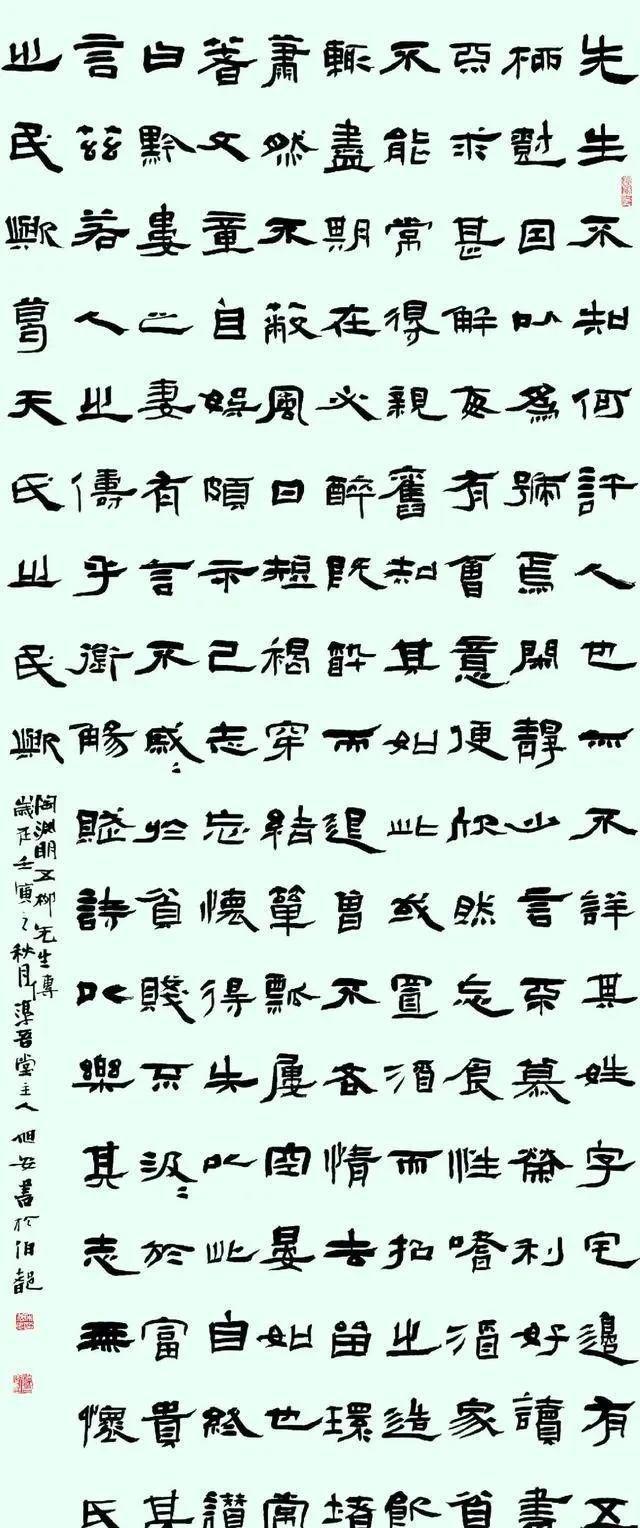 先生不知何許人也亦不詳其姓字宅邊有五
柳樹因以為號焉閑靜少言不慕榮利好讀書
不求甚解每有會意便欣然忘食性嗜酒家貧
不能常得親舊知其如此或置酒而招之造飲
輒盡期在必醉既醉而退曾不吝情去留環堵
蕭然不蔽風日短褐穿結簞瓢屢空晏如也常
著文章自娛頗示己志忘懷得失以此自終讚
曰黔婁之妻有言不戚戚於貧賤不汲汲於富貴其
言茲若人之儔乎銜觴賦詩以樂其志無懷氏
之民歟葛天氏之民歟
陶淵明五柳先生傳
歲在壬寅之秋月堂主人書於